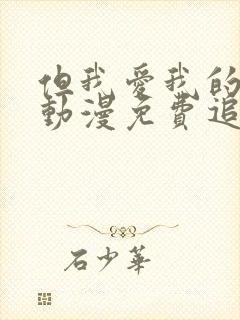 但我愛我的
動漫免費追
石少華